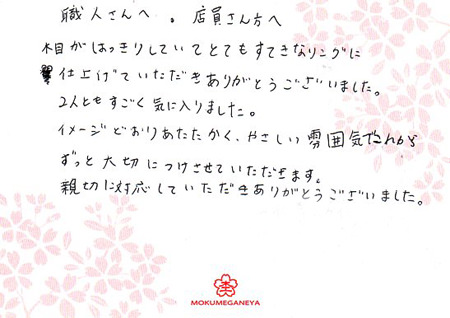 職人さんへ 。 店員さん方へ
木目がはっきりしていてとてもすてきなリングに
仕上げていただきありがとうございました。
2人ともすごく気に入りました。
イメージどおりあたたかく、やさしい雰囲気でこれから
ずっと大切につけさせていただきます。
親切に対応していただきありがとうございました。
MOKUMEGANEYA